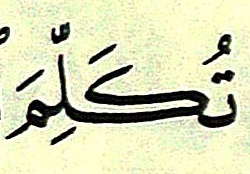 تُكَلِّمَ